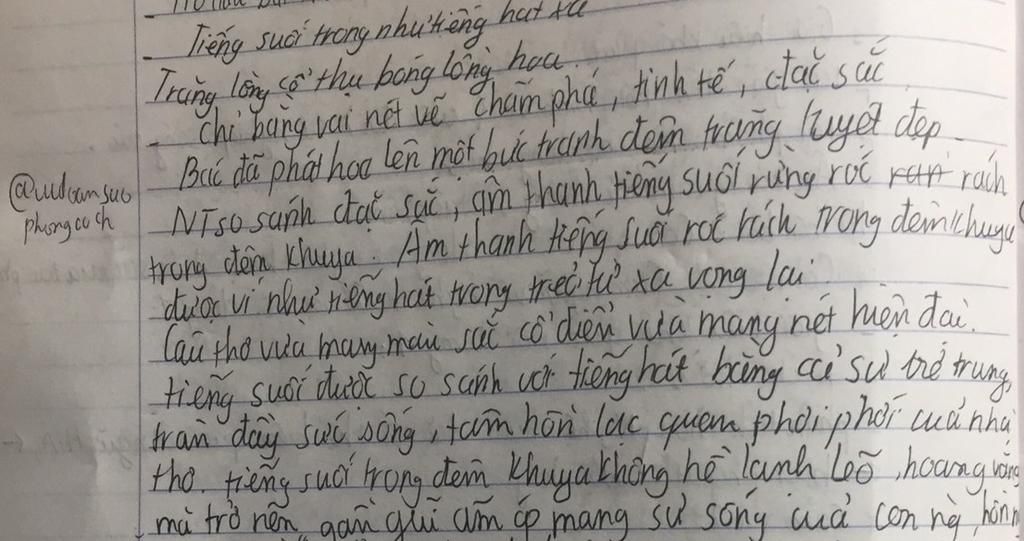 - Tiếng suối trong như tiếng hát xa
Trăng lồng cổ thụ bóng lồng hoa.
- Chỉ bằng vài nét vẽ chấm phá, tinh tế, đặc sắc
Bác đã phát hoạ lên một bức tranh đêm trăng tuyệt đẹp
NT so sánh đặc sắc, âm thanh tiếng suối rừng róc rách
trong đêm khuya. Âm thanh tiếng suối róc rách trong đêm khuya
được ví như tiếng hát trong trẻo từ xa vọng lại.
Câu thơ vừa mang màu sắc cổ điển vừa mang nét hiện đại.
tiếng suối được so sánh với tiếng hát bằng cả sự trẻ trung,
tràn đầy sức sống, tâm hồn lạc quan phơi phới của nhà
thơ. tiếng suối trong đêm khuya không hề lạnh lẽo, hoang vắng
mà trở nên gần gũi ấm áp mang sự sống của con ng, hồn
phongcach